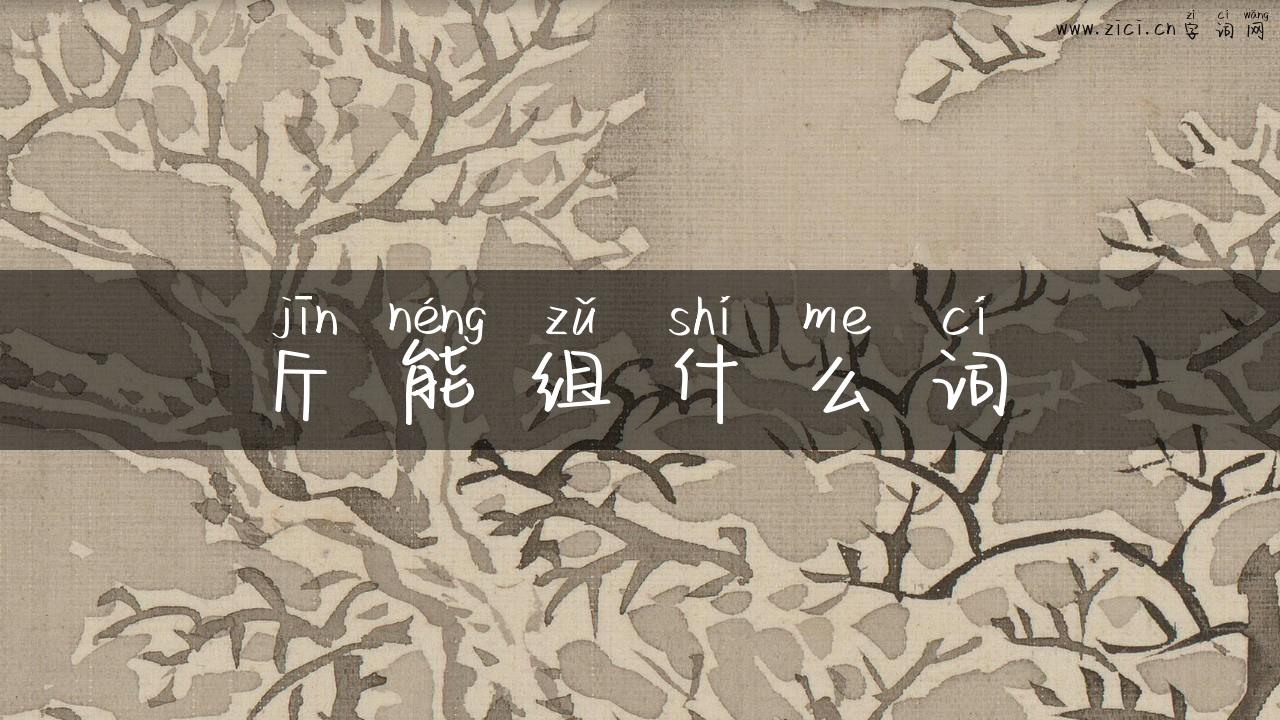 zì cí wǎng
www.zici.cn 字词网
jīn néng zǔ shí me cí
斤能组什么词